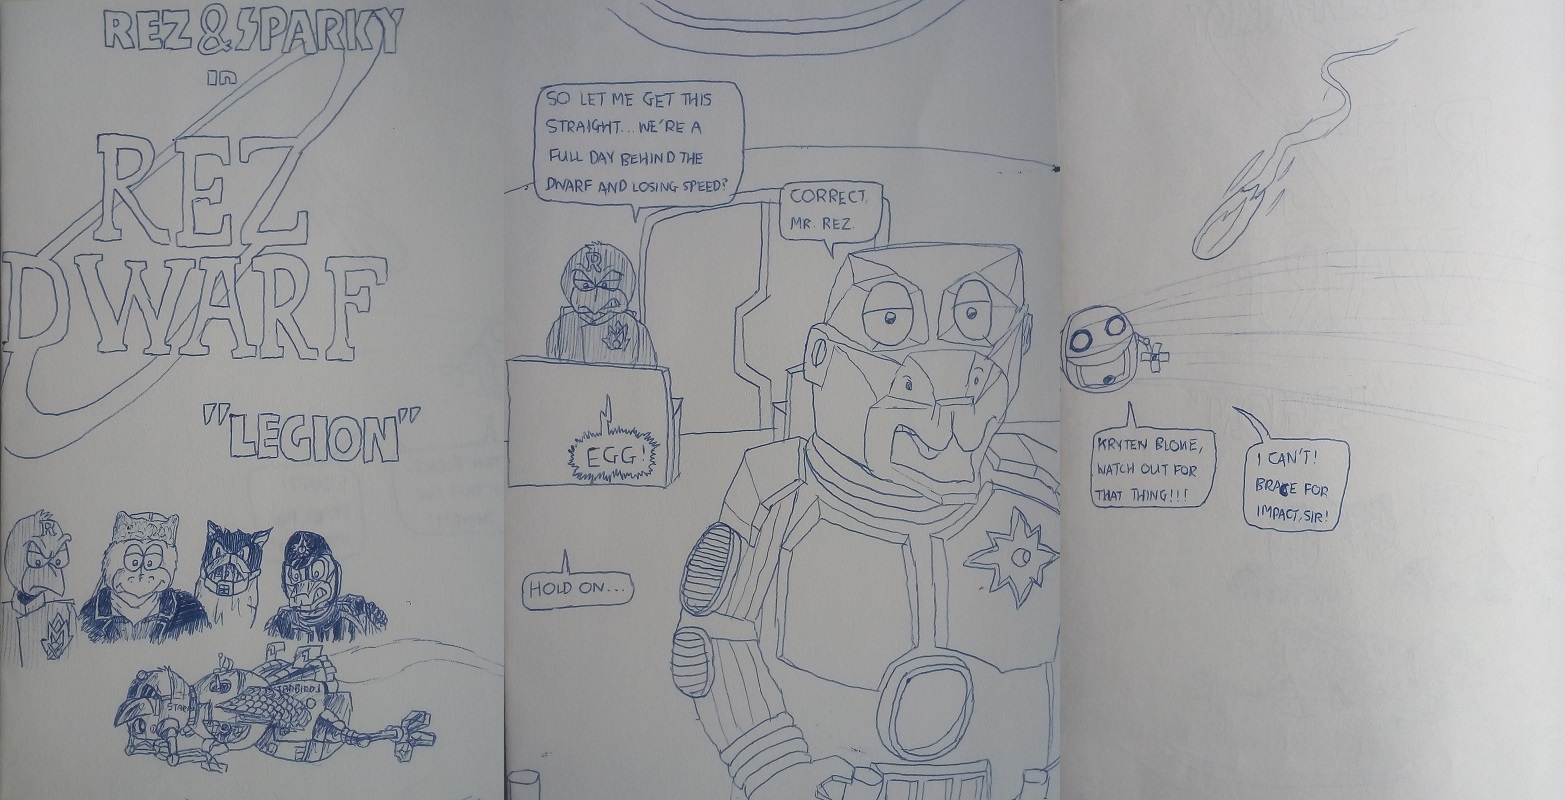 REZ & SPARKY
in
REZ
DWARF
"LEGION"
R
STARBIRD 1
SO LET ME GET THIS
STRAIGHT... WE'RE A
FULL DAY BEHIND THE
DWARF AND LOSING SPEED?
CORRECT,
MR. REZ.
R
EGG!
HOLD ON...
KRYTEN BLOKE,
WATCH OUT FOR
THAT THING!!!
I CAN'T!
BRACE FOR
IMPACT, SIR!